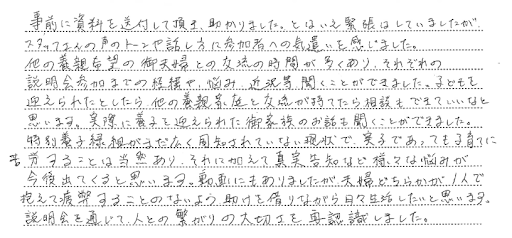 事前に資料を送付して頂き、助かりました。とはいえ緊張はしていましたが
スタッフさんの声のトーンや話し方に参加者への気遣いを感じました。
他の養親希望の御夫婦との交流の時間が多くあり、それぞれの
説明会参加までの経緯や悩み、近況等聞くことができました。子どもを
迎えられたとしたら、他の養親家庭と交流が持てたら相談もできていいなと
思います。実際に養子を迎えられた御家族のお話も聞くことができました。
特別養子縁組がまだ広く周知されていない現状で、実子であっても子育てに
苦労することは当然あり、それに加えて真実告知など様々な悩みが
今後出てくると思います。動画にもありましたが夫婦どちらかが1人で
抱えて疲労することのないよう助けを借りながら日々生活したいと思います。
説明会を通じて人との繋がりの大切さを再認識しました。